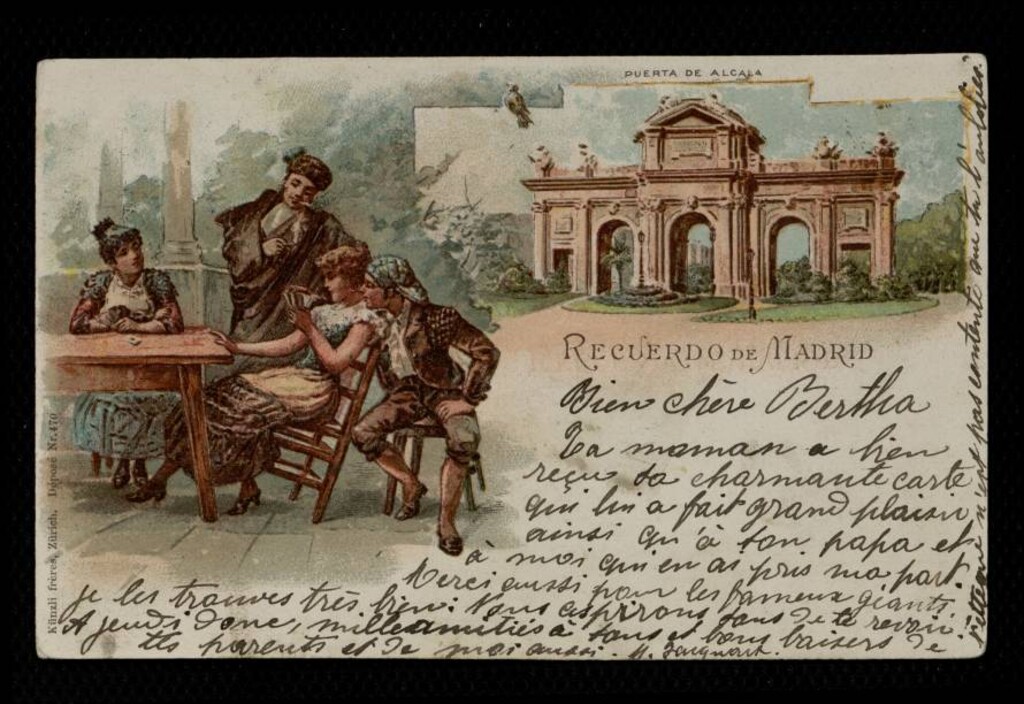 PUERTA DE ALCALA
RECUERDO DE MADRID
Künzli frères, Zürich, Déposé Nr. 470
Bien chère Bertha
Ta maman a bien
reçu ta charmante carte
qui lui a fait grand plaisir
ainsi qu'à ton papa et
à moi qui en ai pris ma part.
Merci aussi pour les fameux géants.
je les trouves très bien. Nous aspirons tous de te revoir!
A jeudi donc, mille amitiés à tous et bons baisers de
tes parents et de moi aussi. M.
n'est pas contente que tu l'oublies.